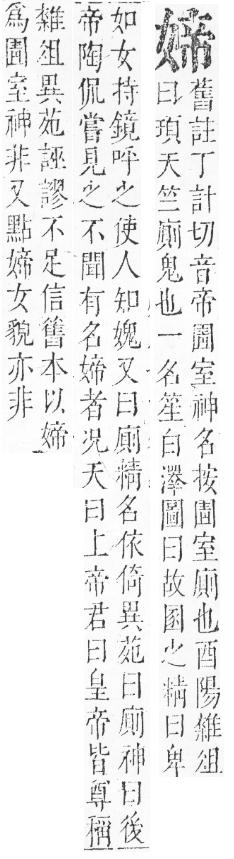 媂
舊註丁計切音帝圊室神名按圊室廁也酉陽雜俎
曰頊天竺廁鬼也一名笙白澤圖曰故圂之精曰卑
如女持鏡呼之使人知媿又曰廁精名依倚異苑曰廁神曰後
帝陶侃嘗見之不聞有名媂者況天曰上帝君曰皇帝皆尊稱
雜俎異苑誣謬不足信舊本以媂
爲圊室神非又點媂女貌亦非